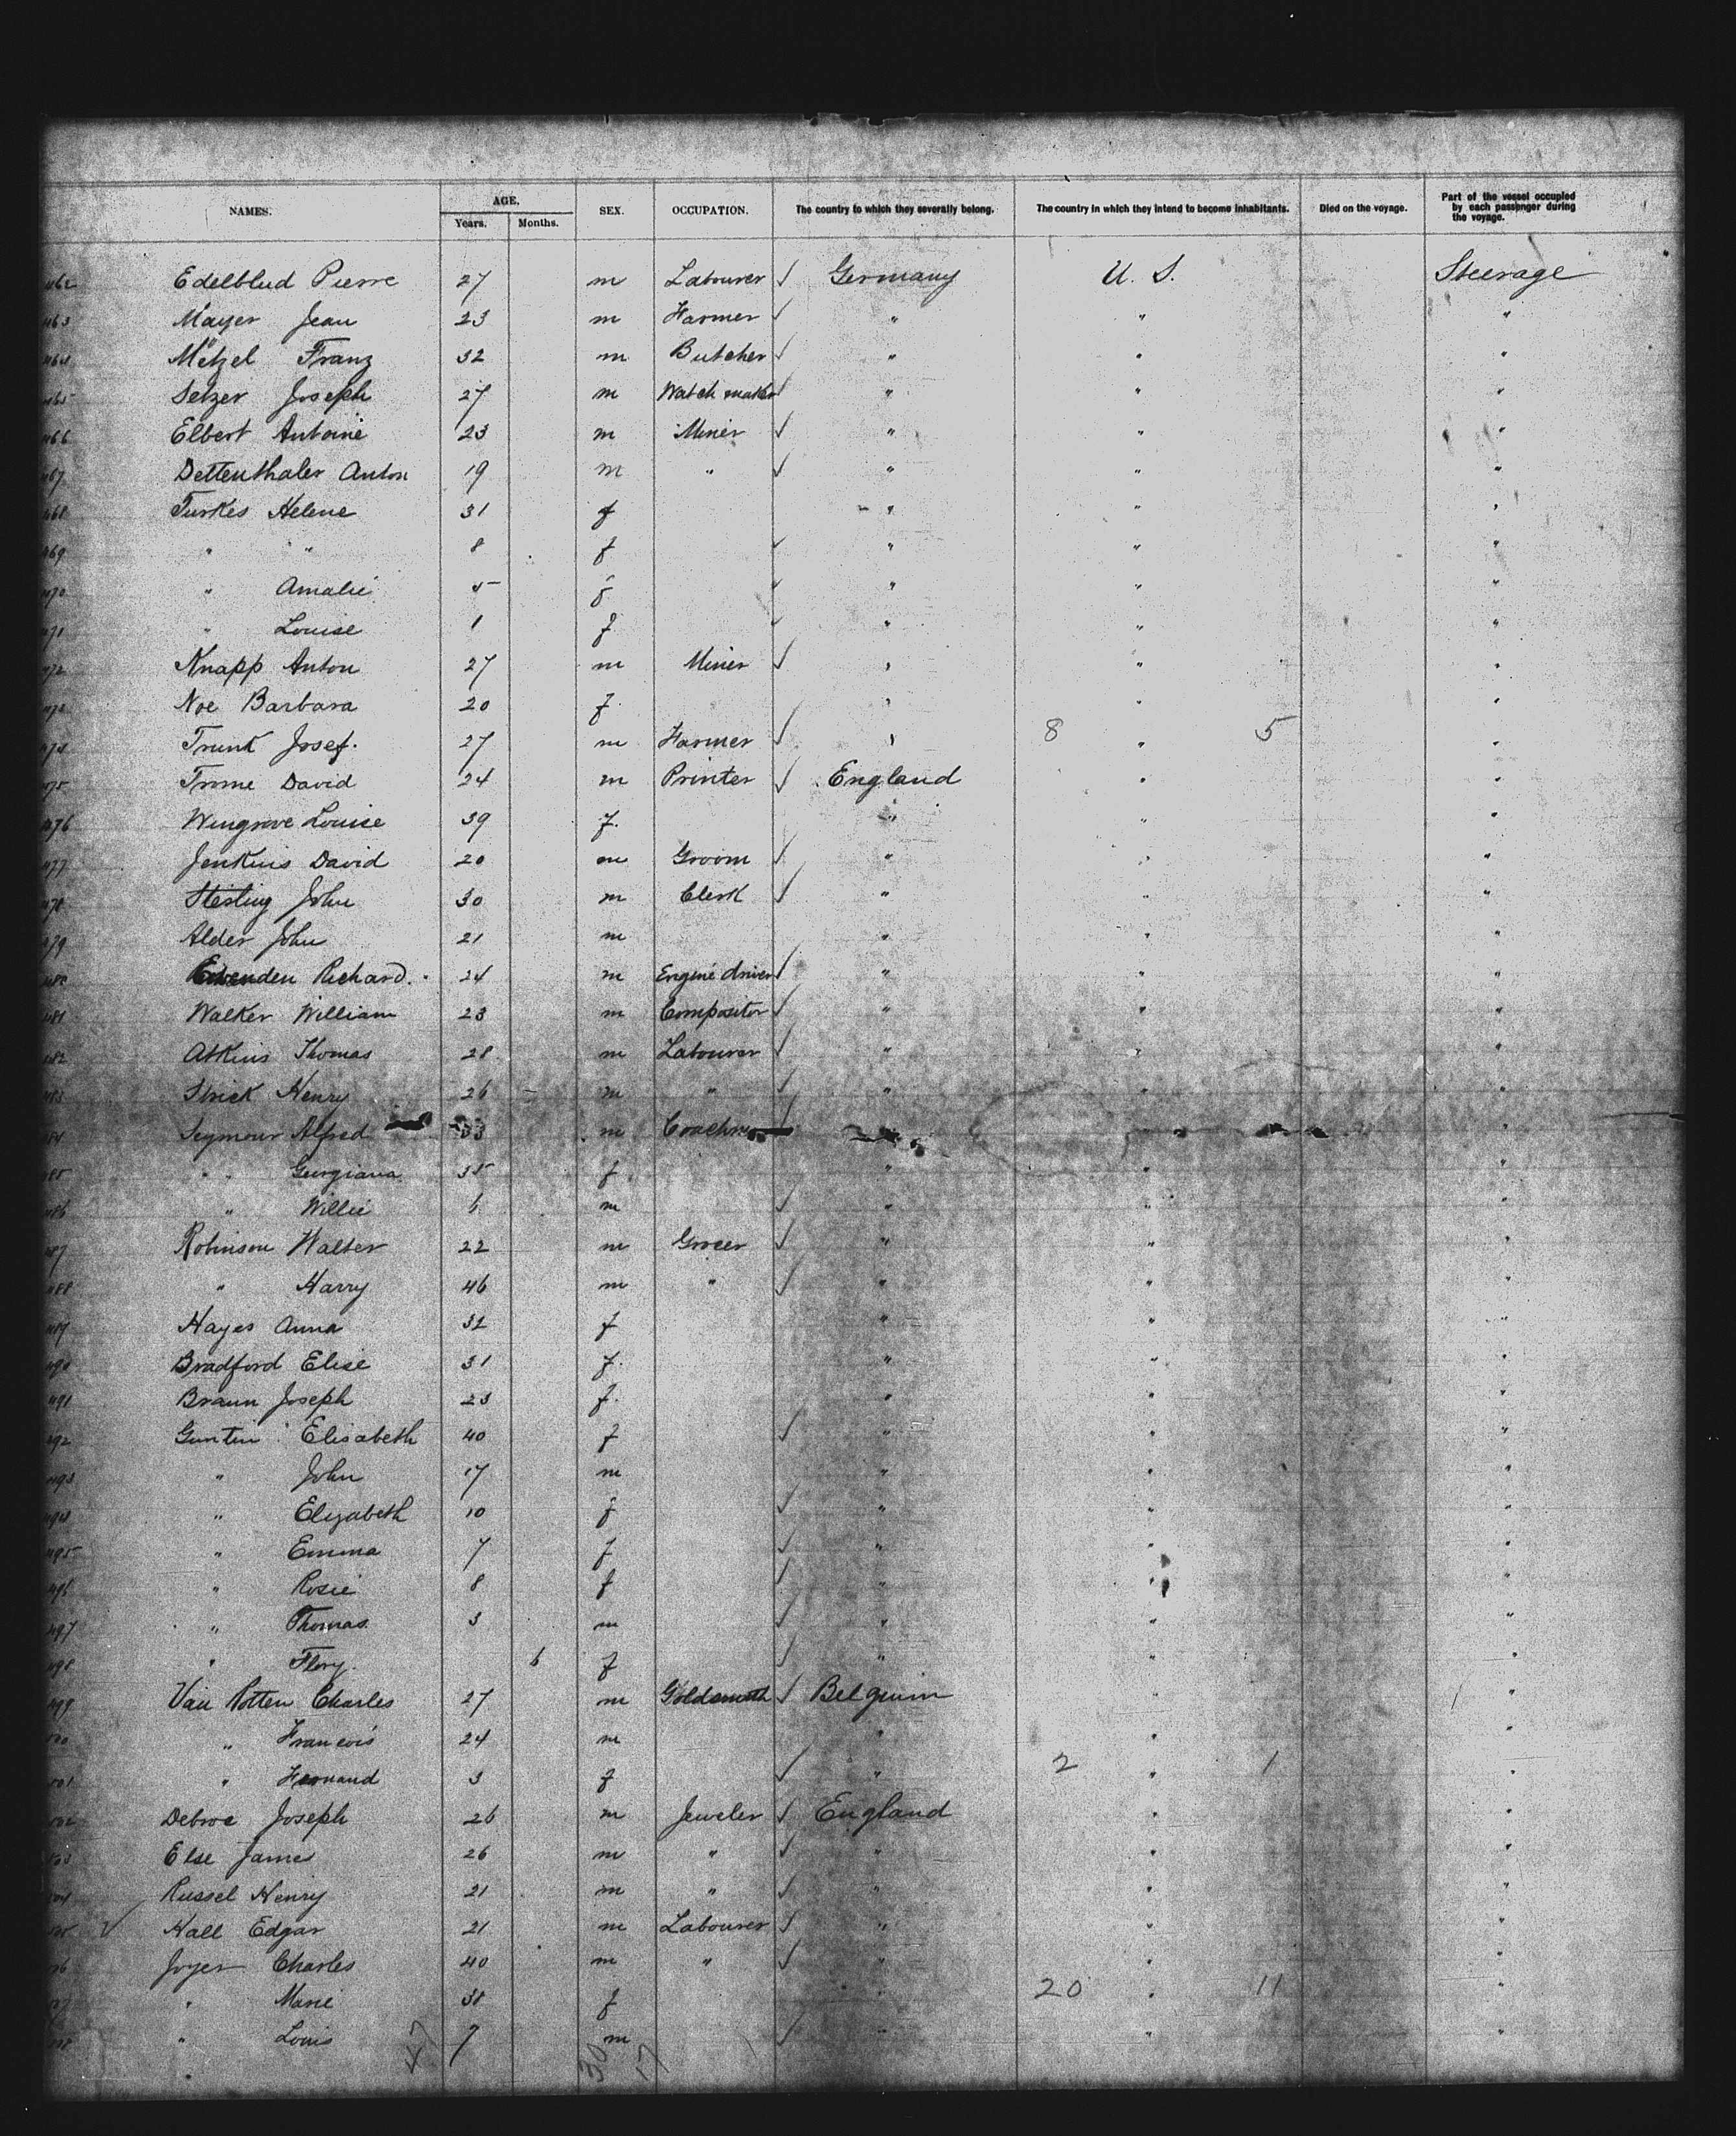 NAMES. AGE. Years. Months. SEX. OCCUPATION. The country to which they severally belong. The country in which they intend to become inhabitants. Died on the voyage. Part of the vessel occupied by each passenger during the voyage.
462 Edelblud Pierre 27 m Labourer √ Germany U. S. Steerage
463 Mayer Jean 23 m Farmer √ " " "
464 Metzel Franz 32 m Butcher √ " " "
465 Selzer Joseph 27 m Watch maker √ " " "
466 Elbert Antoine 23 m Miner √ " " "
467 Dettenthaler Anton 19 m " √ " " "
468 Turkes Helene 31 f " " "
469 " " 8 f √ " " "
470 " Amalie 5 f " " "
471 " Louise 1 f " " "
472 Knapp Anton 27 m Miner √ " " "
473 Noe Barbara 20 f. " " "
474 Trunk Josef. 27 m Farmer √ " 8 " 5 "
475 David 24 m Printer √ England " "
476 Wingrove Louise 39 f. " " "
477 Jenkins David 20 m Groom √ " " "
478 Sterling John 30 m Clerk √ " " "
479 Alder John 21 m " " "
480 Richard. 24 m Engine driver √ " " "
481 Walker William 23 m Compositor √ " " "
482 Atkins Thomas 28 m Labourer √ " " "
483 Strick Henry 26 m " √ " " "
484 Seymour Alfred 33 m √ " "
485 " Georgiana 35 f " " "
486 " Willie 6 m √ " " "
487 Robinson Walter 22 m Grocer √ " " "
488 " Harry 46 m " √ " " "
489 Hayes Anna 32 f " " "
490 Bradford Elise 31 f. " " "
491 Braun Joseph 23 f. " " "
492 Guntin Elisabeth 40 f √ " " "
493 " John 17 m " " "
494 " Elizabeth 10 f √ " " "
495 " Emma 7 f √ " " "
496 " Rosie 8 f √ " " "
497 " Thomas 3 m √ " " "
498 " Flory. 6 f √ " " "
499 Van Rotten Charles 27 m Goldsmith √ Belgium " "
500 " Francois 24 m " " "
501 " Fernand 3 f √ " 2 " 1 "
502 Debroe Joseph 26 m Jeweler √ England " "
503 Else James 26 m " √ " " "
504 Russel Henry 21 m " √ " " "
505 √ Hall Edgar 21 m Labourer √ " " "
506 Joyer Charles 40 m " √ " " "
507 " Marie 38 f " 20 " 11 "
508 " Louis 7 m √ " " "
47 30 17